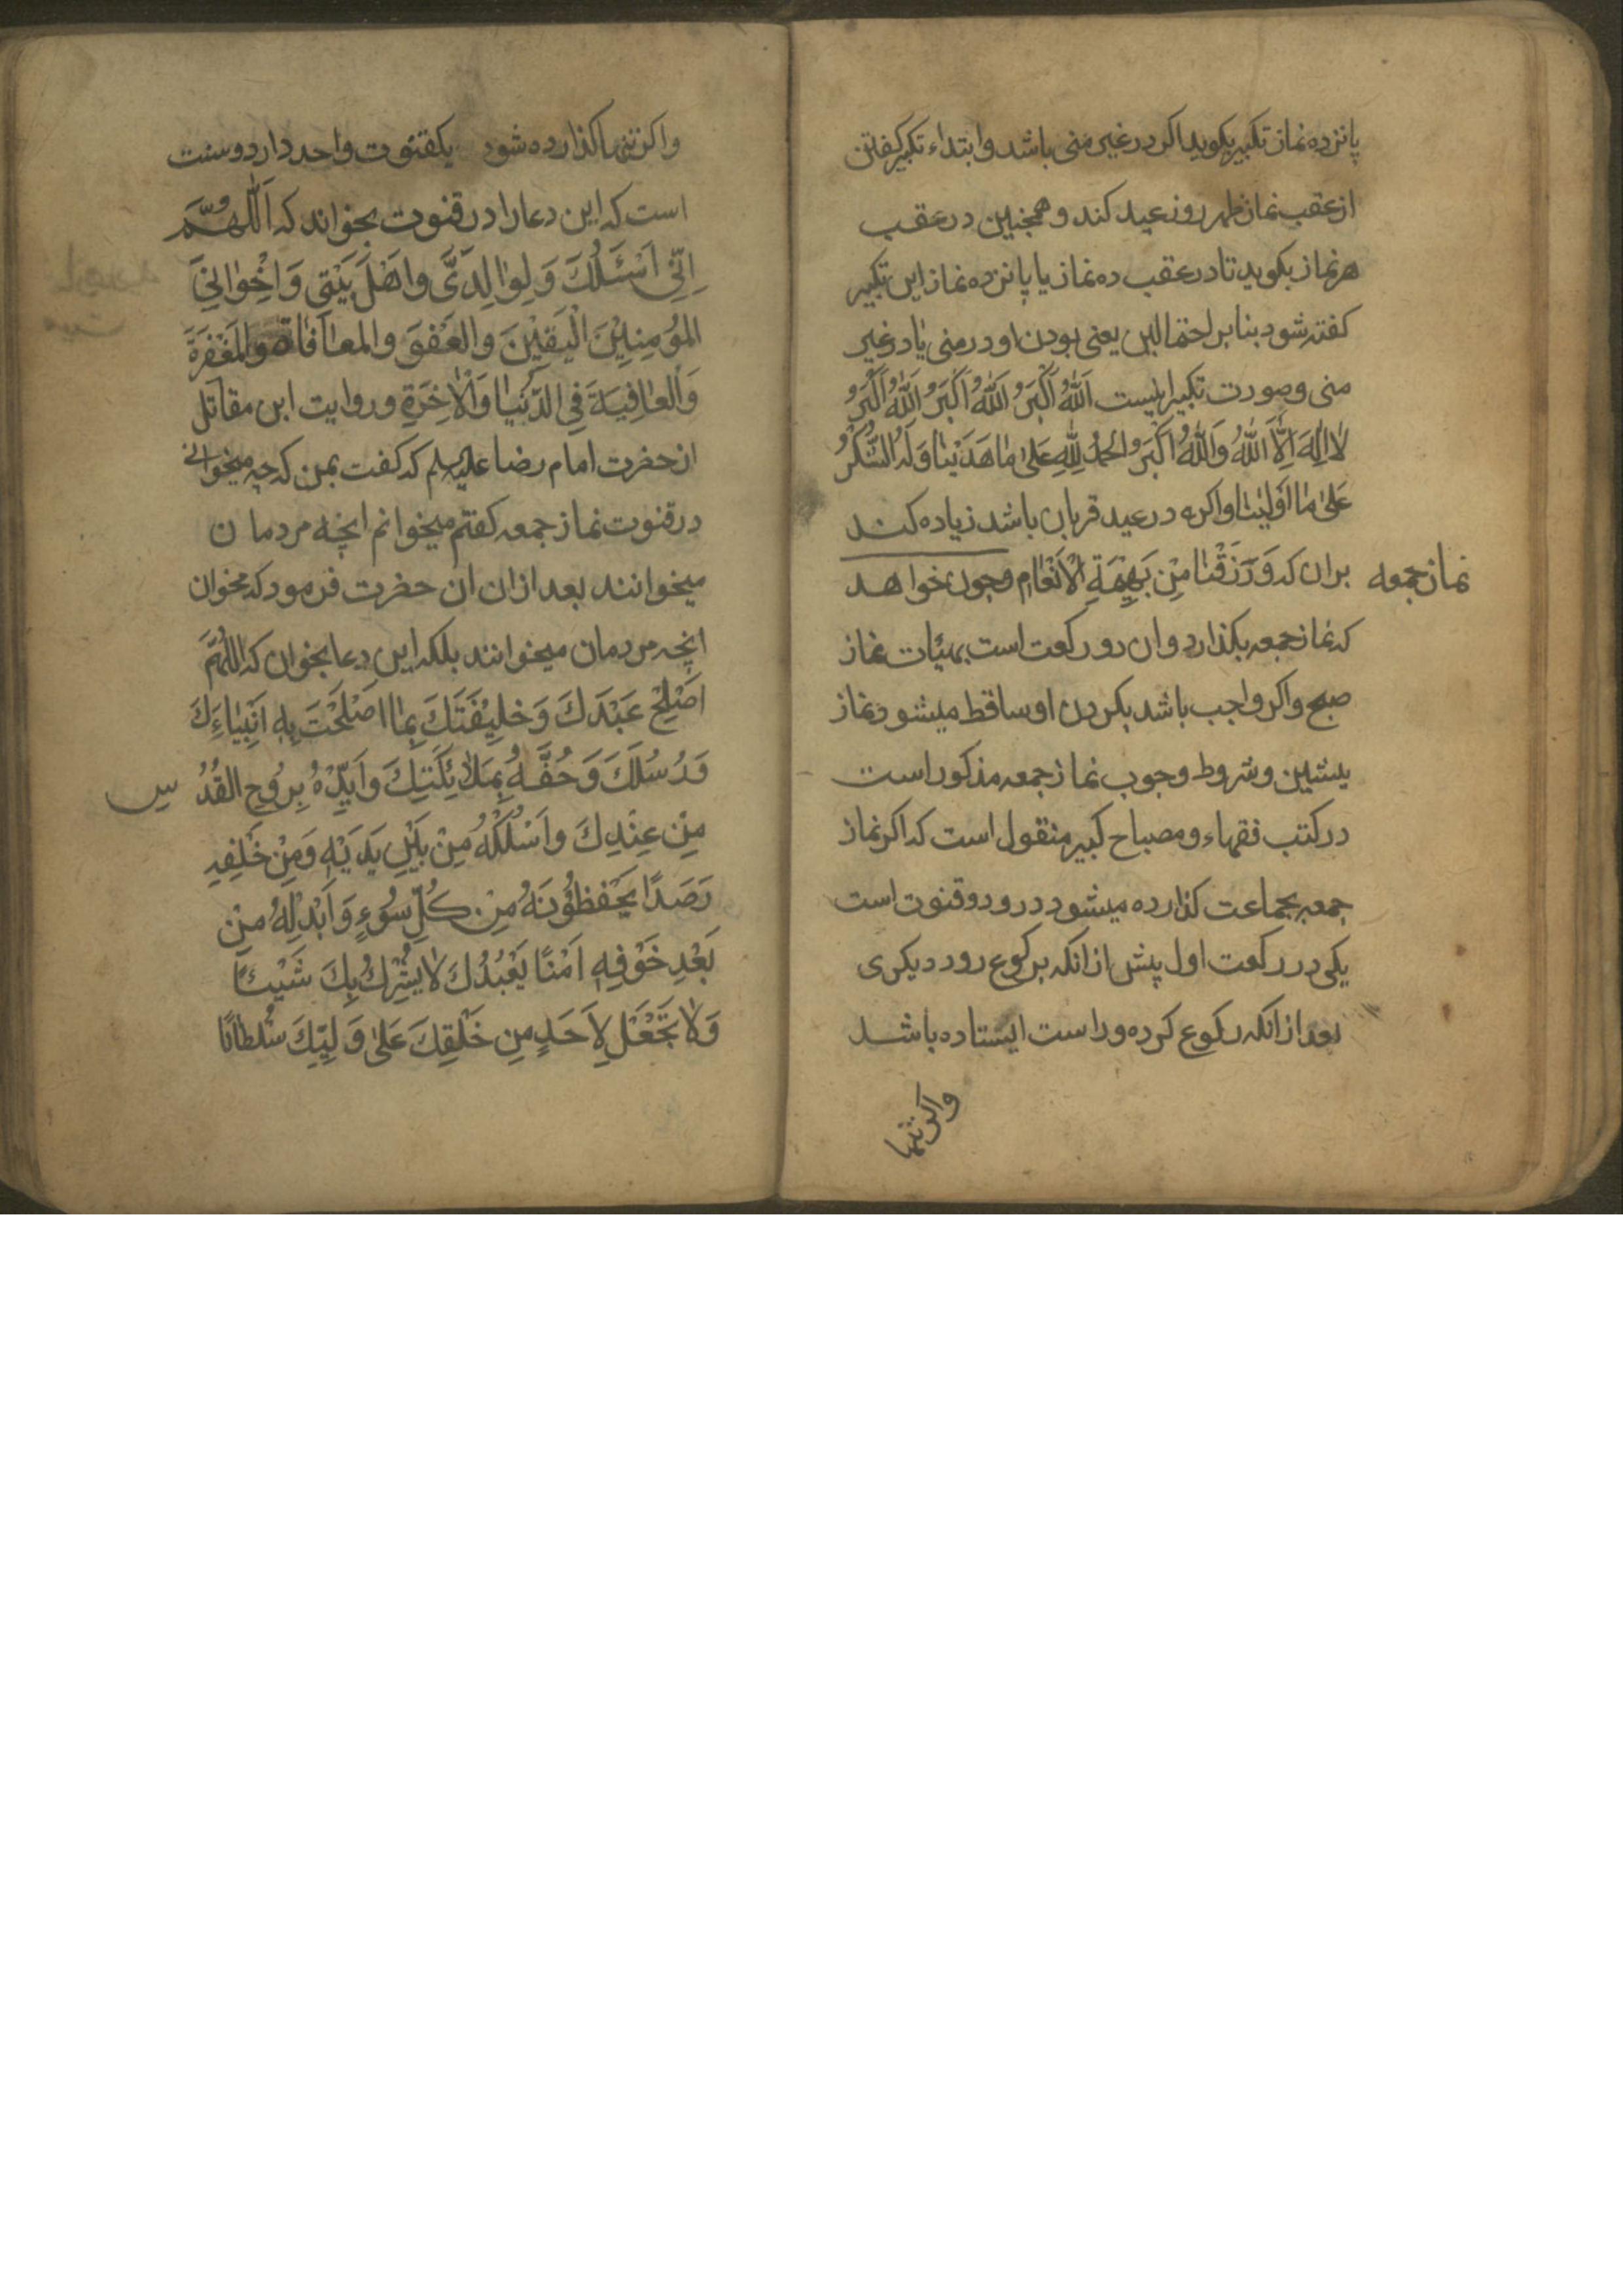 پانزده نماز تکبیر بکوید اکر در غیر منی باشد و ابتداء تکبیر کفتن
از عقب نماز ظهر روز عید کند و همچنین در عقب
هر نماز بکوید تا در عقب ده نماز یا پانزده نماز این تکبیر
کفته شود بنابر احتمالین یعنی بودن او در منی یا در غیر
منی و صورت تکبیر اینست اَللّٰهُ اَکْبَرُ اَللّٰهُ اَکْبَرُ اَللّٰهُ اَکْبَرُ
لٰا اِلٰهَ اِلَّا اللّٰهُ وَاللّٰهُ اَکْبَرُ وَالحَمْدُ لِلّٰهِ عَلیٰ مٰا هَدَیْنٰا وَلَهُ الشُّکْرُ
عَلیٰ مٰا اَوْلَیٰنٰا و اکر در عید قربان باشد زیاده کند
نماز جمعه
بران که وَرَزَقْنٰا مِنْ بَهِیْمَةِ الْاَنْعٰامِ و چون خواهد
که نماز جمعه بکذارد و ان دو رکعت است بهیئات نماز
صبح و اکر واجب باشد بکردن او ساقط میشود نماز
پیشین و شروط وجوب نماز جمعه مذکور است
در کتب فقهاء و مصباح کبیر منقول است که اکر نماز
جمعه بجماعت کذارده میشود درو دو قنوت است
یکی در رکعت اول پیش از انکه برکوع رود دیکری
بعد از انکه رکوع کرده و راست ایستاده باشد
واکر تنها
واکر تنها کذارده شود یکقنوت واحد دارد و سنت
است که این دعا را در قنوت بخواند که اَللّٰهُمَّ
اِنّی اَسْئَلُكَ وَلِوٰالِدَیَّ وَاهْلَ بَیْتی وَاِخْوٰانِیَ
المُؤمِنِیْنَ الْیَقیْنَ وَالْعَفْوَ وَالمعٰافٰاةَ وَالمَغْفِرَةَ
وَالْعٰافِیَةَ فِی الدُّنْیٰا وَالْاٰخِرَةِ و روایت ابن مقاتل
از حضرت امام رضا علیه السلم که کفت بمن که چه میخوانی
در قنوت نماز جمعه کفتم میخوانم انچه مردمان
میخوانند بعد ازان ان حضرت فرمود که مخوان
انچه مردمان میخوانند بلکه این دعا بخوان که اللّٰهُمَّ
اَصْلِحْ عَبْدَكَ وَخَلِیْفَتَكَ بِمٰا اَصْلَحْتَ بِهِ اَنْبِیٰاءَكَ
وَرُسُلَكَ وَحُفَّهُ بِمَلٰائِکَتِكَ وَاَیِّدْهُ بِرُوحِ القُدُسِ
مِنْ عِنْدِكَ وَاَسْلُکْهُ مِنْ بَیْنِ یَدَیْهِ وَمِنْ خَلْفِهِ
رَصَدًا یَحْفَظُوْنَهُ مِنْ کُلِّ سُوْءٍ وَاَبْدِلْهُ مِنْ
بَعْدِ خَوْفِهِ اَمْنًا یَعْبُدُكَ لٰا یُشْرِكُ بِكَ شَیْئًا
وَلٰا تَجْعَلْ لِاَحَدٍ مِن خَلْقِكَ عَلیٰ وَلِیِّكَ سُلْطٰانًا